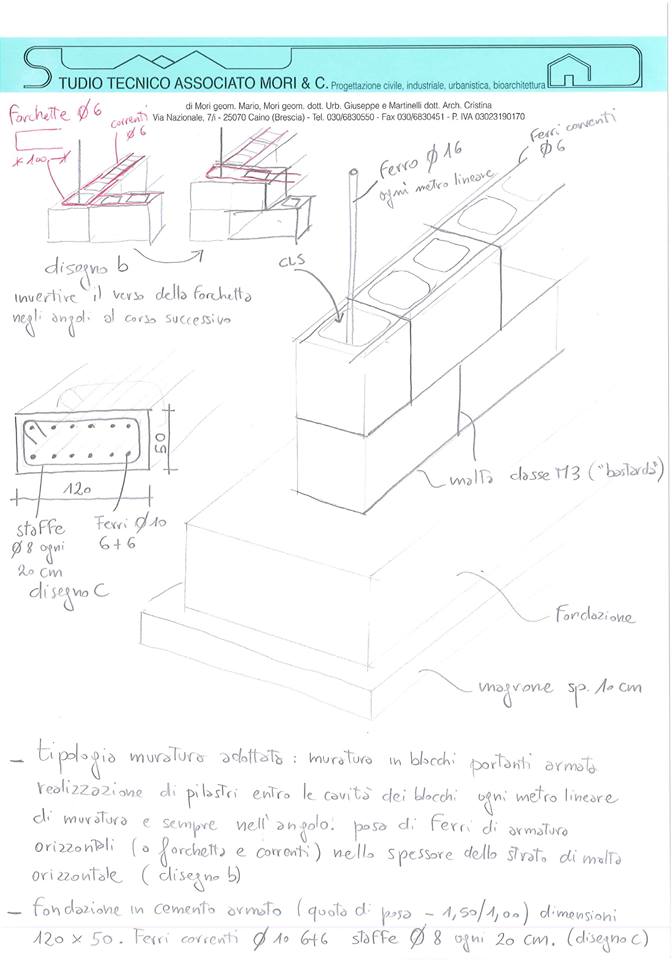 STUDIO TECNICO ASSOCIATO MORI & C. Progettazione civile, industriale, urbanistica, bioarchitettura
di Mori geom. Mario, Mori geom. dott. Urb. Giuseppe e Martinelli dott. Arch. Cristina
Via Nazionale, 7/i - 25070 Caino (Brescia) - Tel. 030/6830550 - Fax 030/6830451 - P. IVA 03023190170
forchette Ø6
correnti
Ø6
100
disegno b
invertire il verso della forchetta
negli angoli al corso successivo
Ferro Ø16
ogni metro lineare
Ferri correnti
Ø6
CLS
50
120
staffe
Ø8 ogni
20 cm
Ferri Ø10
6+6
disegno C
malta classe M3 ("bastarda")
Fondazione
magrone sp. 10 cm
- tipologia muratura adottata: muratura in blocchi portanti armata
realizzazione di pilastri entro le cavità dei blocchi ogni metro lineare
di muratura e sempre nell'angolo. posa di Ferri di armatura
orizzontali (a forchetta e correnti) nello spessore dello strato di malta
orizzontale (disegno b)
- fondazione in cemento armato (quota di posa - 1,50/1,00) dimensioni
120 x 50. Ferri correnti Ø10 6+6 staffe Ø8 ogni 20 cm. (disegno c)